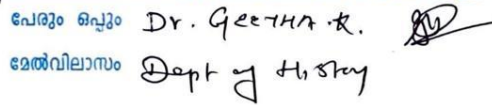 പേരും ഒപ്പും Dr. GEETHA .R.
മേൽവിലാസം Dept of History